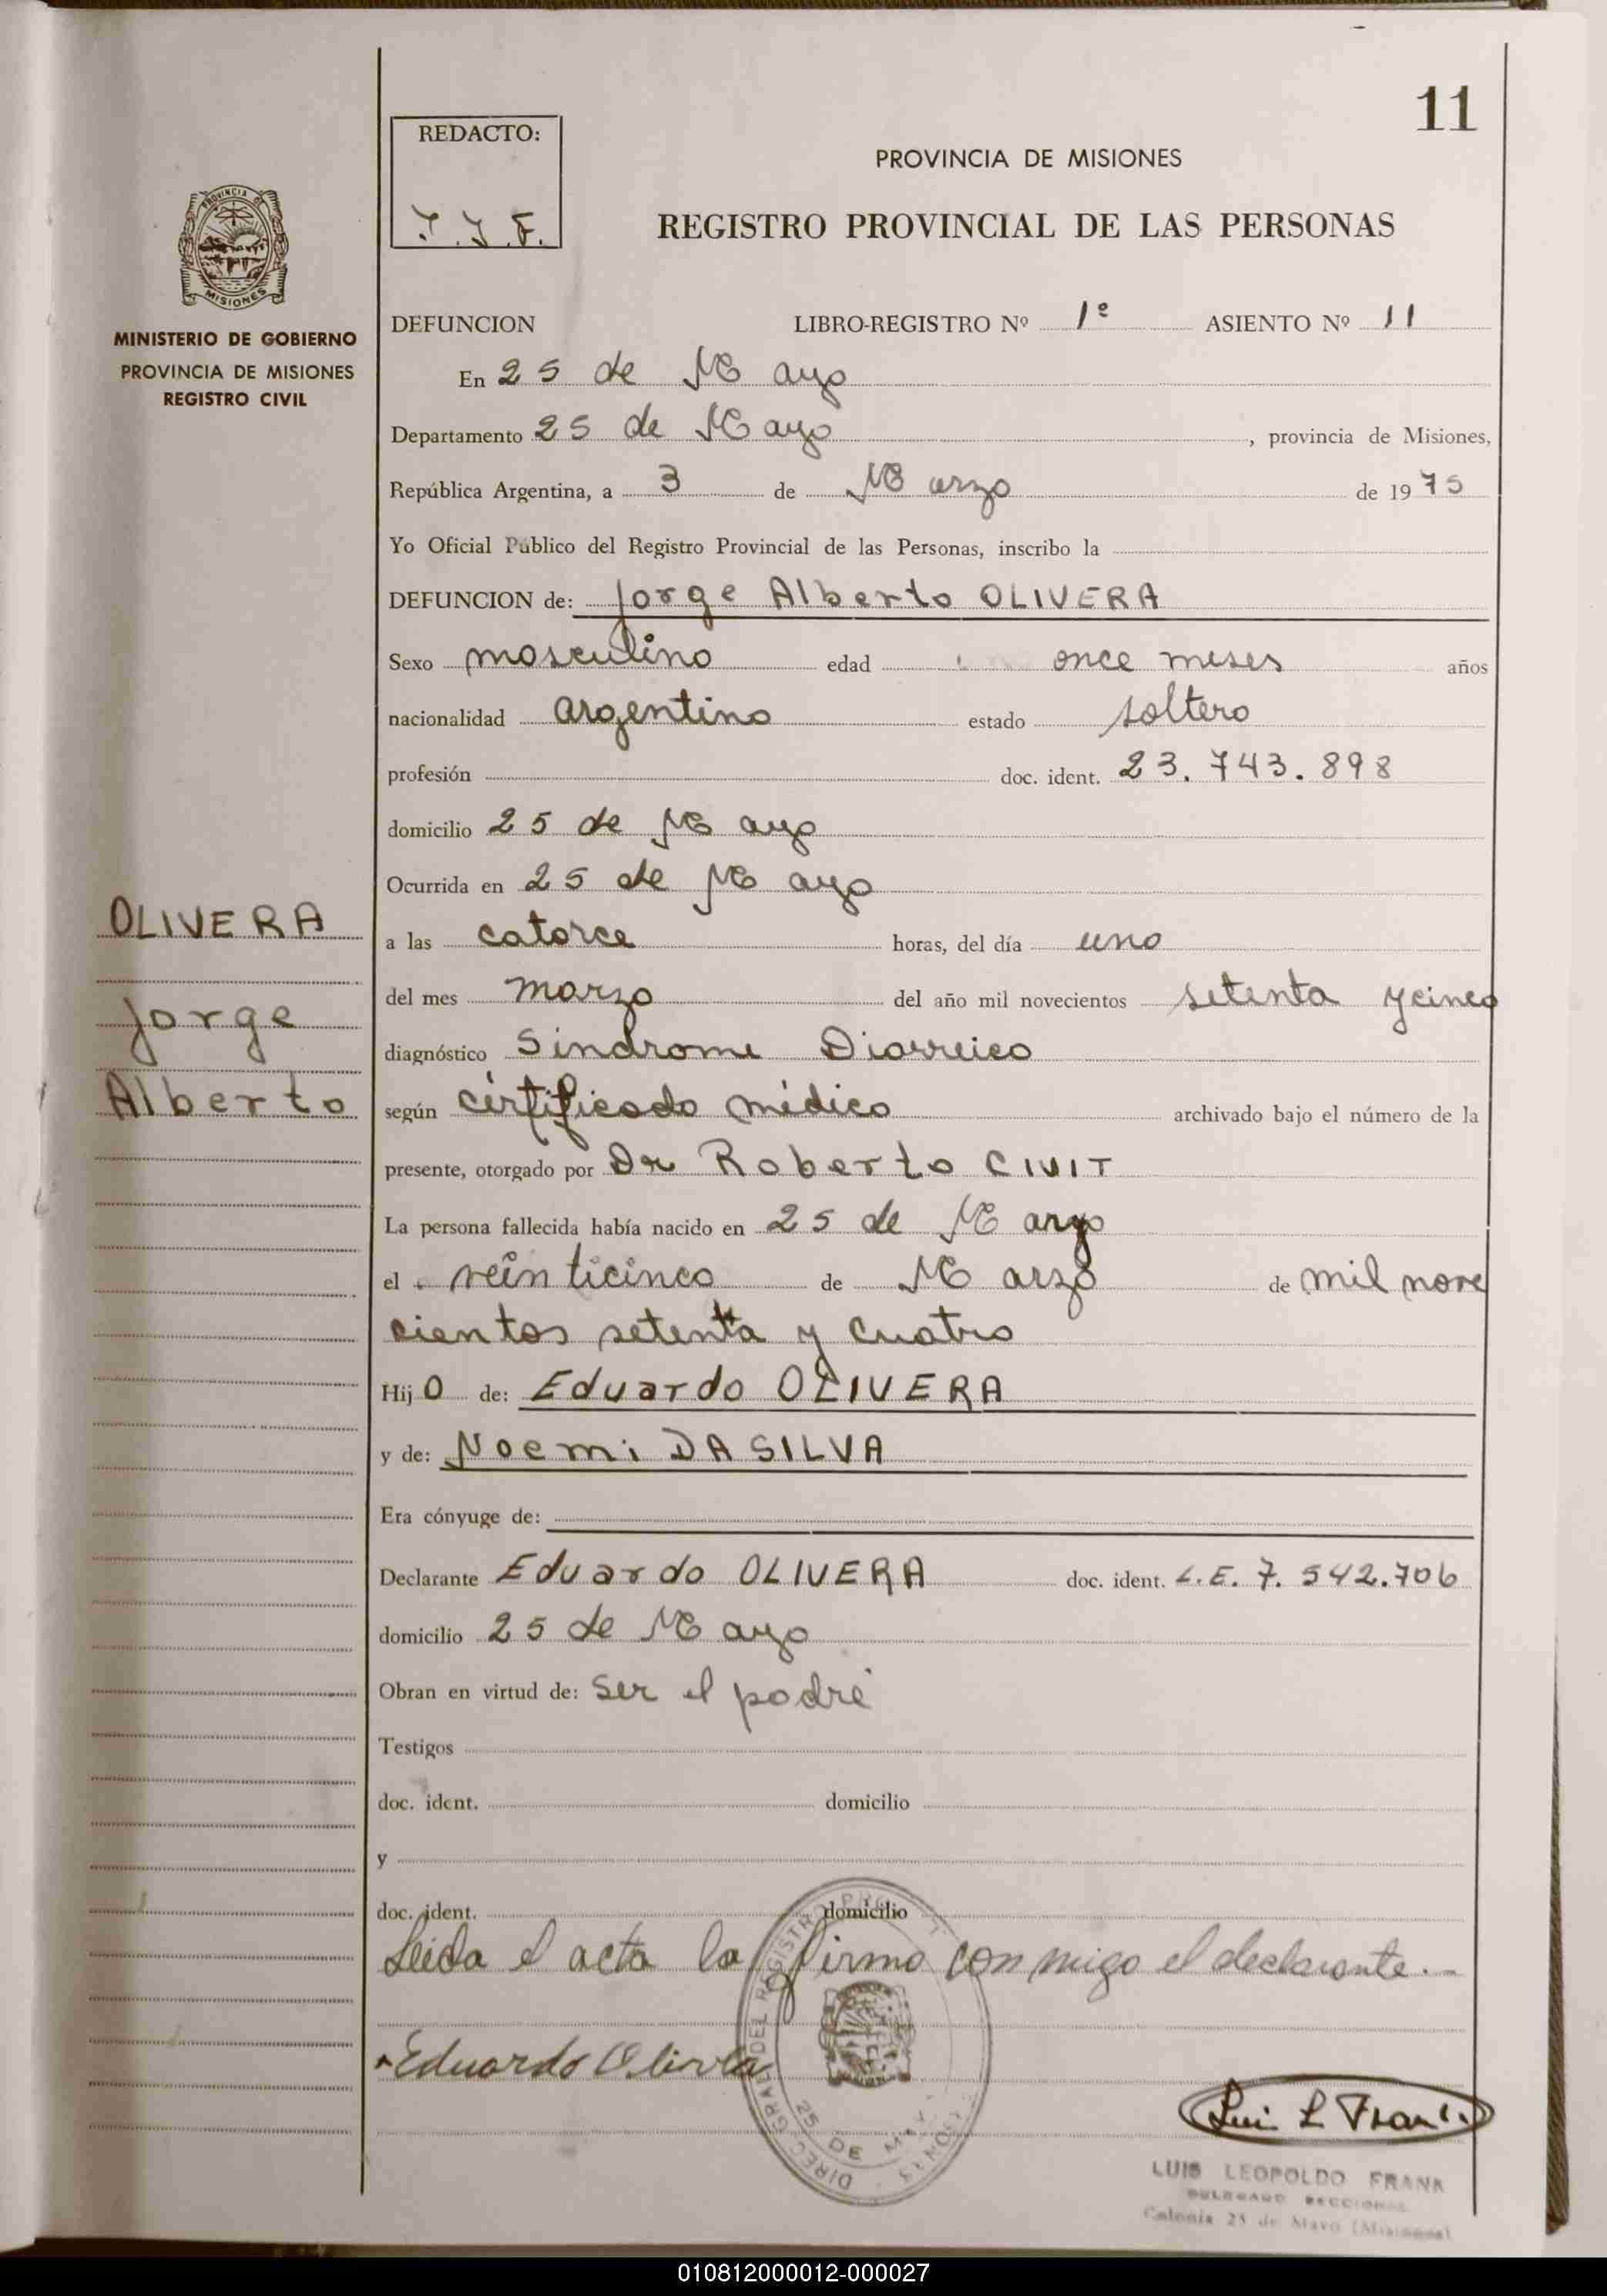 11
REDACTO:
PROVINCIA DE MISIONES
REGISTRO PROVINCIAL DE LAS PERSONAS
PROVINCIA DE
MISIONES
MINISTERIO DE GOBIERNO
PROVINCIA DE MISIONES
REGISTRO CIVIL
DEFUNCION LIBRO-REGISTRO Nº 1º ASIENTO Nº 11
En 25 de Mayo
Departamento 25 de Mayo, provincia de Misiones,
República Argentina, a 3 de Marzo de 1975
Yo Oficial Público del Registro Provincial de las Personas, inscribo la
DEFUNCION de: Jorge Alberto OLIVERA
Sexo masculino edad once meses años
nacionalidad argentino estado soltero
profesión doc. ident. 23.743.898
domicilio 25 de Mayo
Ocurrida en 25 de Mayo
OLIVERA
Jorge
Alberto
a las catorce horas, del día uno
del mes marzo del año mil novecientos setenta y cinco
diagnóstico Sindrome Diarreico
según certificado médico archivado bajo el número de la
presente, otorgado por Dr Roberto CIVIT
La persona fallecida había nacido en 25 de Mayo
el veinticinco de Marzo de mil nove
cientos setenta y cuatro
Hijo de: Eduardo OLIVERA
y de: Noemi DA SILVA
Era cónyuge de:
Declarante Eduardo OLIVERA doc. ident. L.E. 7.542.706
domicilio 25 de Mayo
Obran en virtud de: ser el padre
Testigos
doc. ident. domicilio
y
doc. ident. domicilio
Leida el acta la firma conmigo el declarante.-
Eduardo Olivera
25 DE MAYO
Luis L Frank
LUIS LEOPOLDO FRANK
DELEGADO SECCIONAL
Colonia 25 de Mayo (Misiones)
010812000012-000027